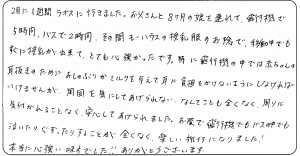 2月に1週間ラオスに行きました。お父さんと8ヶ月の娘を連れて、飛行機で
5時間、バスで2時間、その間モーハウスの授乳服のお陰で、移動中でも
楽に授乳が出来て、とても心強かったです。特に飛行機の中では赤ちゃんの
耳抜きのためにおしゃぶりかミルクを与えて耳に負担をかけないようにしなければ
いけませんが、周囲を気にしてあげられない、なんてことも全くなく、周りに
気付かれることなく、安心してあげられました。お陰で、飛行機でもバスの中でも
泣いたりぐずったりすることが全くなく、楽しい旅行になりました!
本当に心強い味方でした!!ありがとうございます。